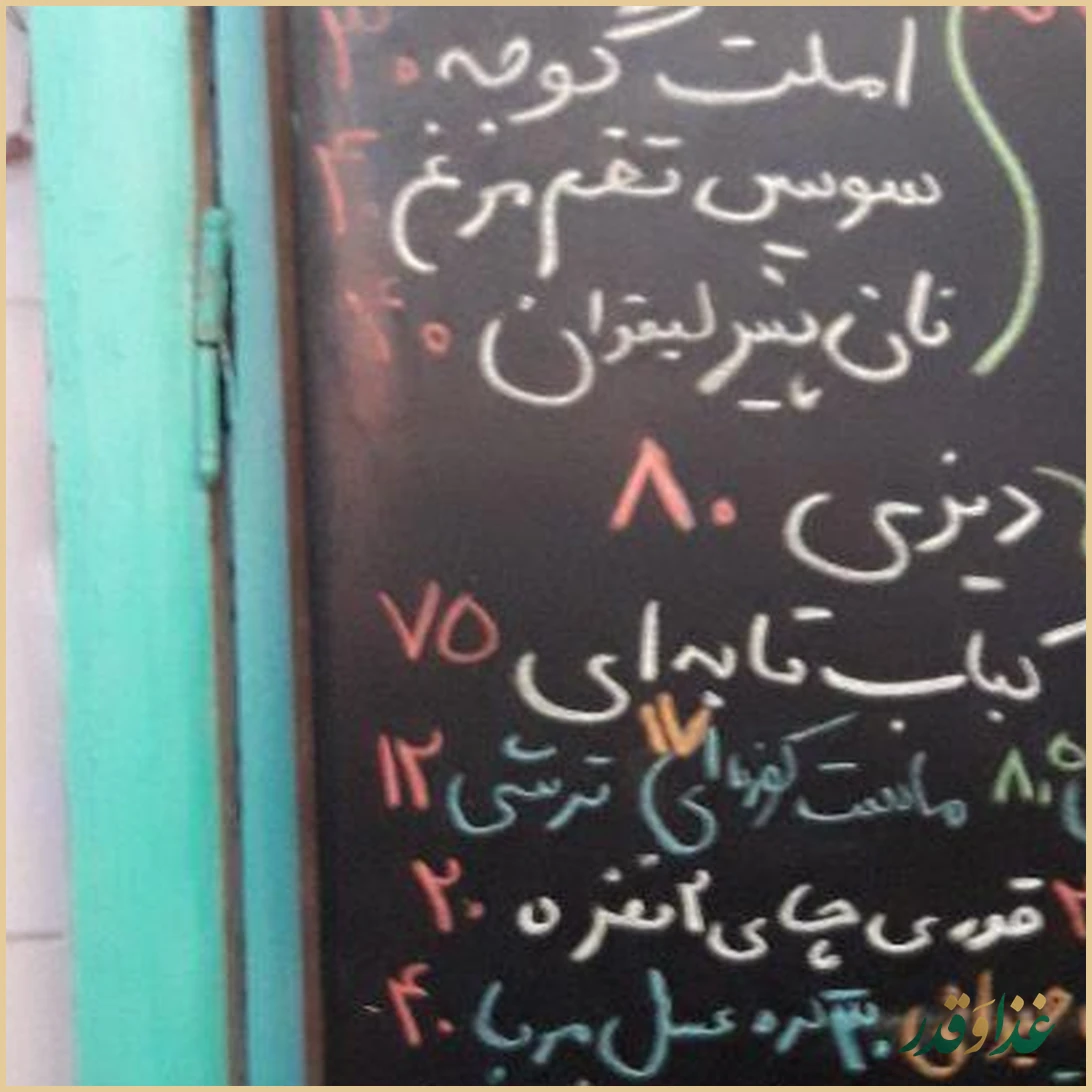 املت گوجه ۳۰
سوسیس تخم مرغ
نان پنیر لیقوان
دیزی ۸۰
کباب تابه ای ۷۵
۸.۵ ماست کوزه ای ۱۷ ترشی ۱۲
قوری چای ۲ نفره ۲۰
کره عسل مربا ۴۰
غذا و قدر